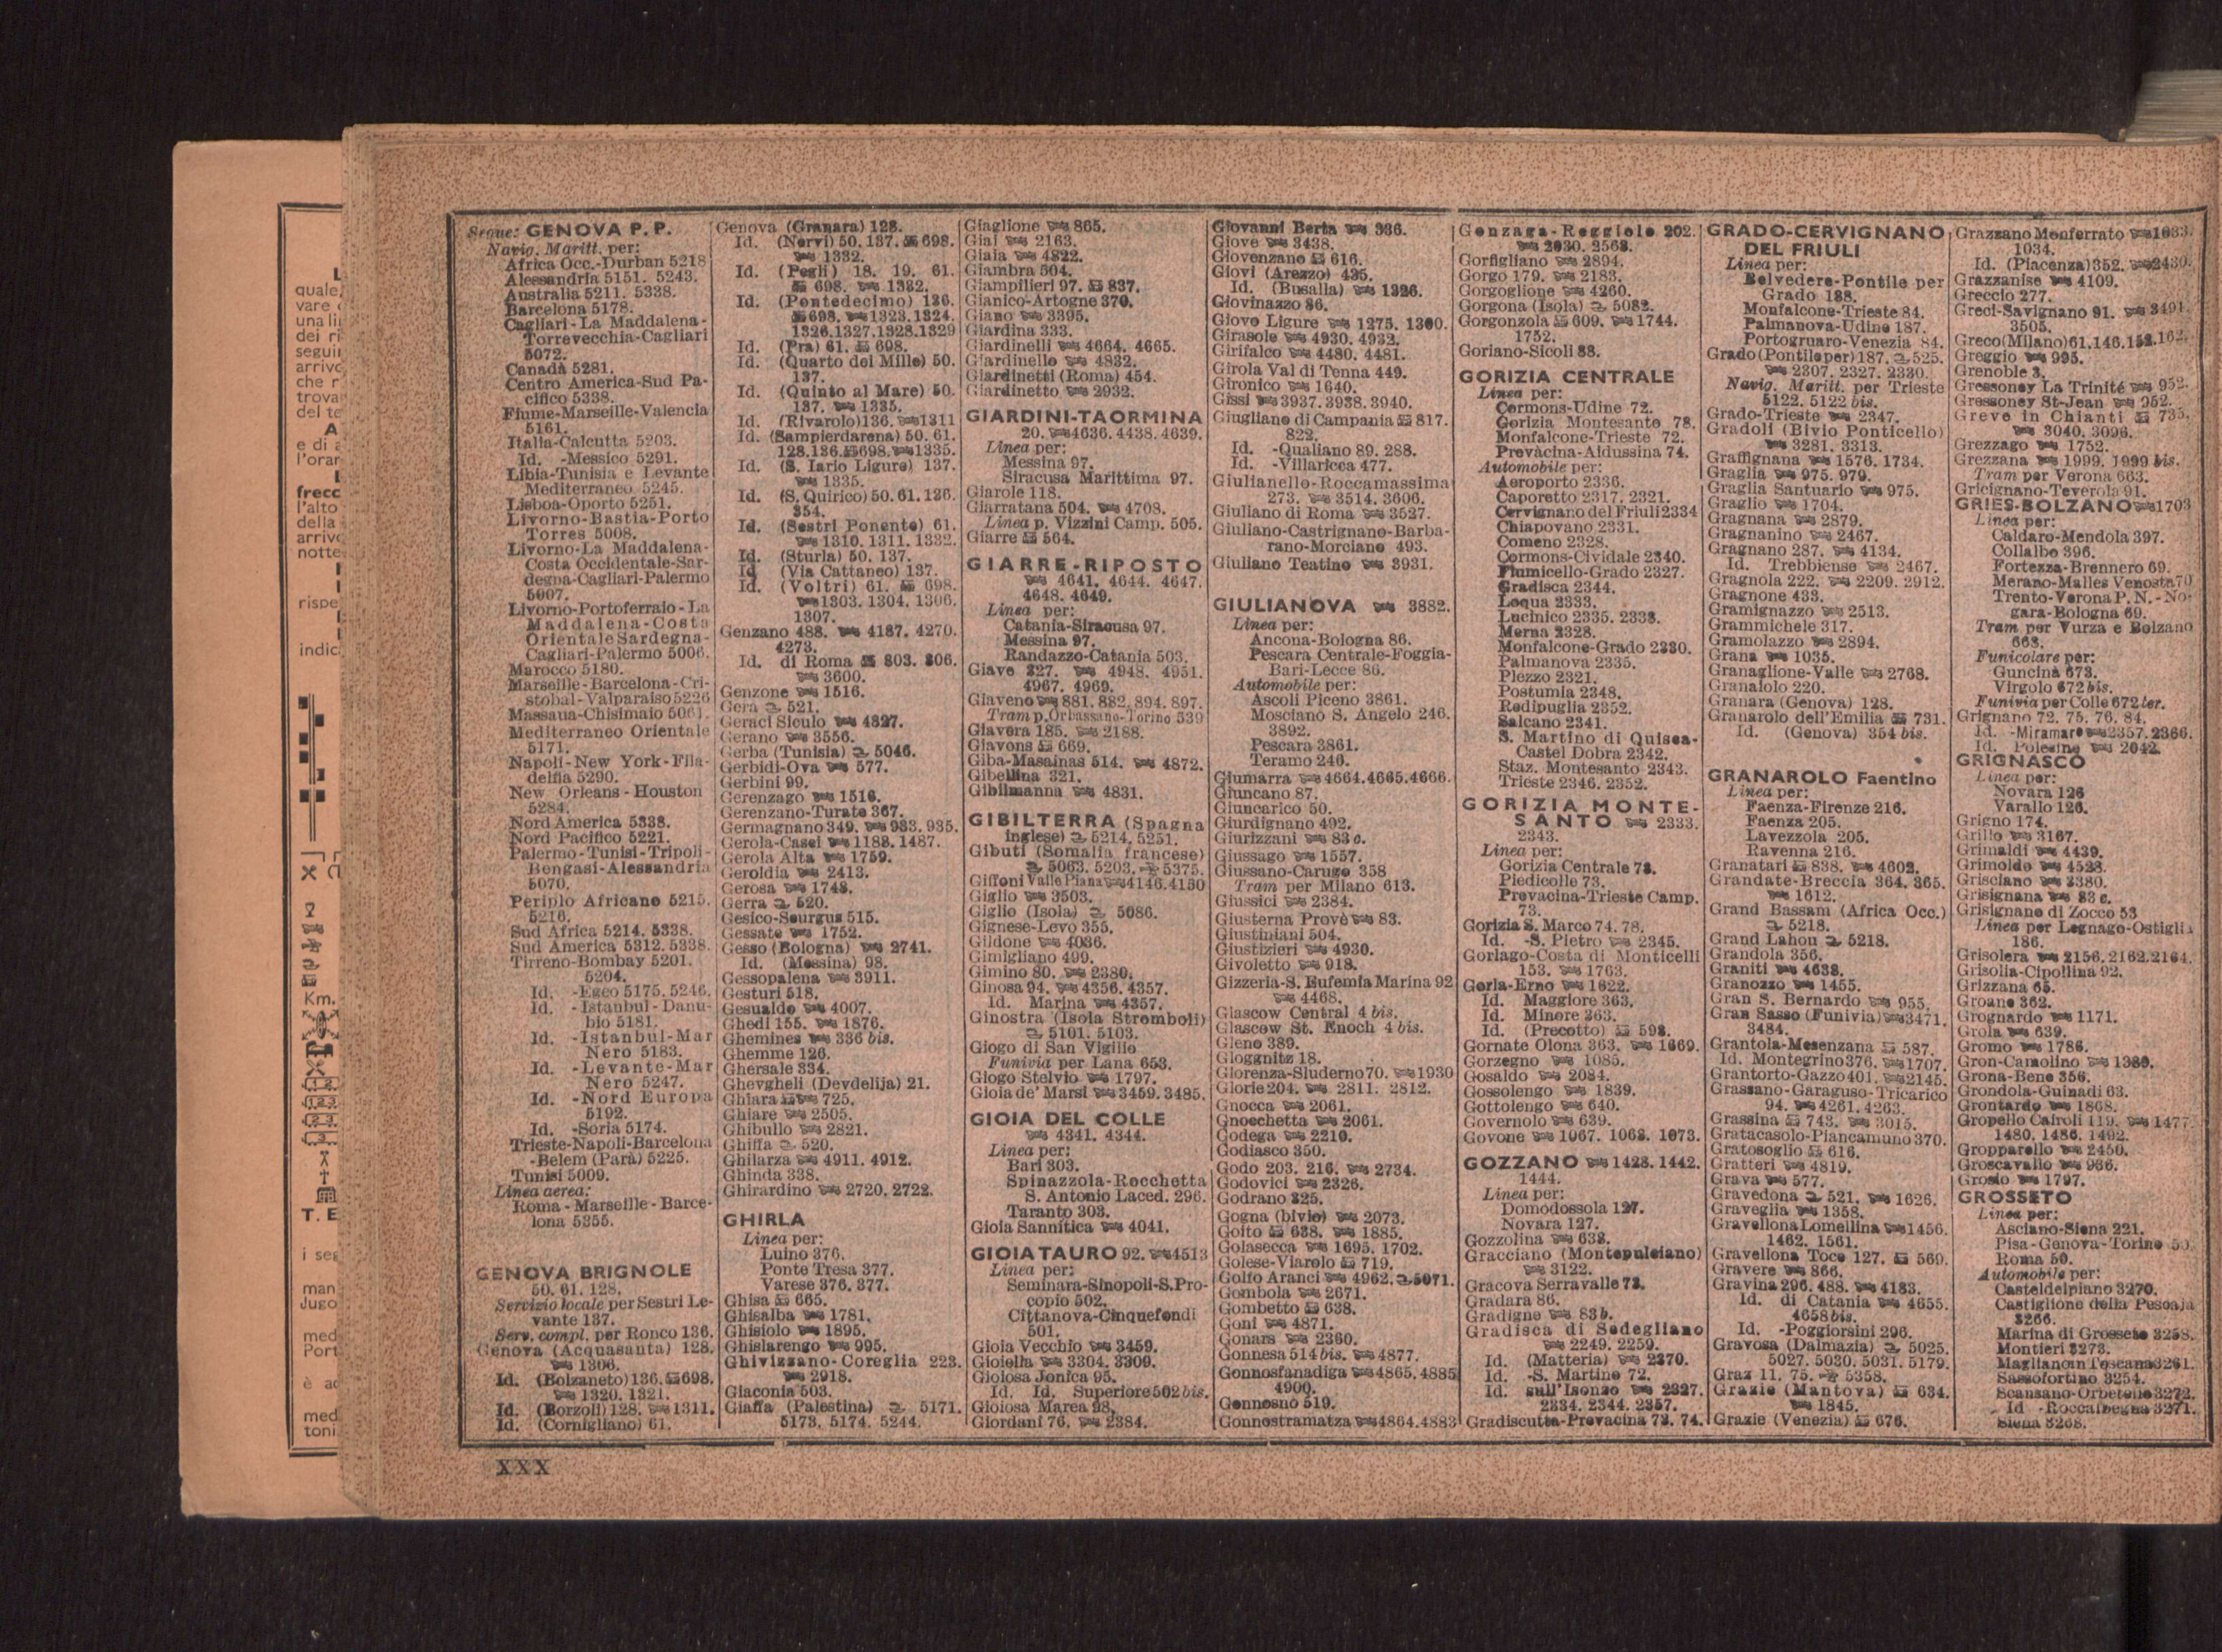 Segue: GENOVA P. P.
Navig. Maritt. per:
Africa Occ.-Durban 5218
Alessandria 5151. 5243.
Australia 5211. 5338.
Barcelona 5178.
Cagliari-La Maddalena-
Torrevecchia-Cagliari
5072.
Canadà 5281.
Centro America-Sud Pa-
cifico 5338.
Fiume-Marseille-Valencia
5161.
Italia-Calcutta 5203.
Id. -Messico 5291.
Libia-Tunisia e Levante
Mediterraneo 5245.
Lisboa-Oporto 5251.
Livorno-Bastia-Porto
Torres 5008.
Livorno-La Maddalena-
Costa Occidentale-Sar-
degna-Cagliari-Palermo
5007.
Livorno-Portoferraio-La
Maddalena-Costa
Orientale Sardegna-
Cagliari-Palermo 5006.
Marocco 5180.
Marseille-Barcelona-Cri-
stobal-Valparaiso 5226
Massaua-Chisimaio 5061.
Mediterraneo Orientale
5171.
Napoli-New York-Fila-
delfia 5290.
New Orleans-Houston
5284.
Nord America 5338.
Nord Pacifico 5221.
Palermo-Tunisi-Tripoli-
Bengasi-Alessandria
5070.
Periplo Africano 5215.
5216.
Sud Africa 5214. 5338.
Sud America 5312. 5338.
Tirreno-Bombay 5201.
5204.
Id. -Egeo 5175. 5246.
Id. -Istanbul-Danu-
bio 5181.
Id. -Istanbul-Mar
Nero 5183.
Id. -Levante-Mar
Nero 5247.
Id. -Nord Europa
5192.
Id. -Soria 5174.
Trieste-Napoli-Barcelona
-Belem (Parà) 5225.
Tunisi 5009.
Linea aerea:
Roma-Marseille-Barce-
lona 5355.
GENOVA BRIGNOLE
50. 61. 128.
Servizio locale per Sestri Le-
vante 137.
Serv. compl. per Ronco 136.
Genova (Acquasanta) 128.
1306.
Id. (Bolzaneto) 136. 698.
1320. 1321.
Id. (Borzoli) 128. 1311.
Id. (Cornigliano) 61.
Genova (Granara) 128.
Id. (Nervi) 50. 137. 698.
1332.
Id. (Pegli) 18. 19. 61.
698. 1332.
Id. (Pontedecimo) 136.
698. 1323. 1324.
1326. 1327. 1328. 1329
Id. (Pra) 61. 698.
Id. (Quarto dei Mille) 50.
137.
Id. (Quinto al Mare) 50.
137. 1335.
Id. (Rivarolo) 136. 1311
Id. (Sampierdarena) 50. 61.
128. 136. 698. 1335.
Id. (S. Ilario Ligure) 137.
1335.
Id. (S. Quirico) 50. 61. 136.
354.
Id. (Sestri Ponente) 61.
1310. 1311. 1332.
Id. (Sturla) 50. 137.
Id. (Via Cattaneo) 137.
Id. (Voltri) 61. 698.
1303. 1304. 1306.
1307.
Genzano 488. 4187. 4270.
4273.
Id. di Roma 803. 806.
3600.
Genzone 1516.
Gera 521.
Geraci Siculo 4827.
Gerano 3556.
Gerba (Tunisia) 5046.
Gerbidi-Ova 577.
Gerbini 99.
Gerenzago 1516.
Gerenzano-Turate 367.
Germagnano 349. 933. 935.
Gerola-Casei 1188. 1487.
Gerola Alta 1759.
Geroldia 2413.
Gerosa 1748.
Gerra 520.
Gesico-Seurgus 515.
Gessate 1752.
Gesso (Bologna) 2741.
Id. (Messina) 98.
Gessopalena 3911.
Gesturi 518.
Gesualdo 4007.
Ghedi 155. 1876.
Ghemines 336 bis.
Ghemme 126.
Ghersale 334.
Ghevgheli (Devdelija) 21.
Ghiara 725.
Ghiare 2505.
Ghibullo 2821.
Ghiffa 520.
Ghilarza 4911. 4912.
Ghinda 338.
Ghirardino 2720. 2722.
GHIRLA
Linea per:
Luino 376.
Ponte Tresa 377.
Varese 376. 377.
Ghisa 665.
Ghisalba 1781.
Ghisiolo 1895.
Ghislarengo 995.
Ghivizzano-Coreglia 223.
2918.
Giaconia 503.
Giaffa (Palestina) 5171.
5173. 5174. 5244.
Giaglione 865.
Giai 2163.
Giaia 4822.
Giambra 504.
Giampilieri 97. 837.
Gianico-Artogne 370.
Giano 3395.
Giardina 333.
Giardinelli 4664. 4665.
Giardinello 4832.
Giardinetti (Roma) 454.
Giardinetto 2932.
GIARDINI-TAORMINA
20. 4636. 4438. 4639.
Linea per:
Messina 97.
Siracusa Marittima 97.
Giarole 118.
Giarratana 504. 4708.
Linea p. Vizzini Camp. 505.
Giarre 564.
GIARRE-RIPOSTO
4641. 4644. 4647.
4648. 4649.
Linea per:
Catania-Siracusa 97.
Messina 97.
Randazzo-Catania 503.
Giave 327. 4948. 4951.
4967. 4969.
Giaveno 881. 882. 894. 897.
Tram p. Orbassano-Torino 539
Giavera 185. 2188.
Giavons 669.
Giba-Masainas 514. 4872.
Gibellina 321.
Gibilmanna 4831.
GIBILTERRA (Spagna
inglese) 5214. 5251.
Gibuti (Somalia francese)
5063. 5203. 5375.
Giffoni Valle Piana 4146. 4150
Giglio 3503.
Giglio (Isola) 5086.
Gignese-Levo 355.
Gildone 4086.
Gimigliano 499.
Gimino 80. 2380.
Ginosa 94. 4356. 4357.
Id. Marina 4357.
Ginostra (Isola Stromboli)
5101. 5103.
Giogo di San Vigilio
Funivia per Lana 653.
Giogo Stelvio 1797.
Gioia de' Marsi 3459. 3485.
GIOIA DEL COLLE
4341. 4344.
Linea per:
Bari 303.
Spinazzola-Rocchetta
S. Antonio Laced. 296.
Taranto 303.
Gioia Sannitica 4041.
GIOIA TAURO 92. 4513
Linea per:
Seminara-Sinopoli-S. Pro-
copio 502.
Cittanova-Cinquefondi
501.
Gioia Vecchio 3459.
Gioiella 3304. 3309.
Gioiosa Jonica 95.
Id. Id. Superiore 502 bis.
Gioiosa Marea 98.
Giordani 76. 2384.
Giovanni Berta 336.
Giove 3438.
Giovenzano 616.
Giovi (Arezzo) 435.
Id. (Busalla) 1326.
Giovinazzo 86.
Giovo Ligure 1275. 1300.
Girasole 4930. 4932.
Girifalco 4480. 4481.
Girola Val di Tenna 449.
Gironico 1640.
Gissi 3937. 3938. 3940.
Giugliano di Campania 817.
822.
Id. -Qualiano 89. 288.
Id. -Villaricca 477.
Giulianello-Roccamassima
273. 3514. 3606.
Giuliano di Roma 3527.
Giuliano-Castrignano-Barba-
rano-Morciano 493.
Giuliano Teatino 3931.
GIULIANOVA 3882.
Linea per:
Ancona-Bologna 86.
Pescara Centrale-Foggia-
Bari-Lecce 86.
Automobile per:
Ascoli Piceno 3861.
Mosciano S. Angelo 246.
3892.
Pescara 3861.
Teramo 246.
Giumarra 4664. 4665. 4666.
Giuncano 87.
Giuncarico 50.
Giurdignano 492.
Giurizzani 83 c.
Giussago 1557.
Giussano-Carugo 358
Tram per Milano 613.
Giussici 2384.
Giusterna Provè 83.
Giustiniani 504.
Giustizieri 4930.
Givoletto 918.
Gizzeria-S. Eufemia Marina 92
4468.
Glascow Central 4 bis.
Glascow St. Enoch 4 bis.
Gleno 389.
Gloggnitz 18.
Glorenza-Sluderno 70. 1930
Glorie 204. 2811. 2812.
Gnocca 2061.
Gnocchetta 2061.
Godega 2210.
Godiasco 350.
Godo 203. 216. 2734.
Godovici 2326.
Godrano 325.
Gogna (bivio) 2073.
Goito 638. 1885.
Golasecca 1695. 1702.
Golese-Viarolo 719.
Golfo Aranci 4962. 5071.
Gombola 2671.
Gombetto 638.
Goni 4871.
Gonars 2360.
Gonnesa 514 bis. 4877.
Gonnosfanadiga 4865. 4885
4900.
Gonnosnò 519.
Gonnostramatza 4864. 4883
Gonzaga-Reggiolo 202.
2030. 2568.
Gorfigliano 2894.
Gorgo 179. 2183.
Gorgoglione 4260.
Gorgona (Isola) 5082.
Gorgonzola 609. 1744.
1752.
Goriano-Sicoli 88.
GORIZIA CENTRALE
Linea per:
Cormons-Udine 72.
Gorizia Montesanto 78.
Monfalcone-Trieste 72.
Prevàcina-Aidussina 74.
Automobile per:
Aeroporto 2336.
Caporetto 2317. 2321.
Cervignano del Friuli 2334
Chiapovano 2331.
Comeno 2328.
Cormons-Cividale 2340.
Fiumicello-Grado 2327.
Gradisca 2344.
Loqua 2333.
Lucinico 2335. 2338.
Merna 2328.
Monfalcone-Grado 2330.
Palmanova 2335.
Plezzo 2321.
Postumia 2348.
Redipuglia 2352.
Salcano 2341.
S. Martino di Quisca-
Castel Dobra 2342.
Staz. Montesanto 2343.
Trieste 2346. 2352.
GORIZIA MONTE-
SANTO 2333.
2343.
Linea per:
Gorizia Centrale 73.
Piedicolle 73.
Prevacina-Trieste Camp.
73.
Gorizia S. Marco 74. 78.
Id. -S. Pietro 2345.
Gorlago-Costa di Monticelli
153. 1763.
Gorla-Erno 1622.
Id. Maggiore 363.
Id. Minore 363.
Id. (Precotto) 598.
Gornate Olona 363. 1669.
Gorzegno 1085.
Gosaldo 2084.
Gossolengo 1839.
Gottolengo 640.
Governolo 639.
Govone 1067. 1068. 1073.
GOZZANO 1428. 1442.
1444.
Linea per:
Domodossola 127.
Novara 127.
Gozzolina 638.
Gracciano (Montepulciano)
3122.
Gracova Serravalle 73.
Gradara 86.
Gradigne 83 b.
Gradisca di Sedegliano
2249. 2259.
Id. (Matteria) 2370.
Id. -S. Martino 72.
Id. sull'Isonzo 2327.
2334. 2344. 2357.
Gradiscutta-Prevacina 73. 74.
GRADO-CERVIGNANO
DEL FRIULI
Linea per:
Belvedere-Pontile per
Grado 188.
Monfalcone-Trieste 84.
Palmanova-Udine 187.
Portogruaro-Venezia 84.
Grado (Pontile per) 187. 525.
2307. 2327. 2330.
Navig. Maritt. per Trieste
5122. 5122 bis.
Grado-Trieste 2347.
Gradoli (Bivio Ponticello)
3281. 3313.
Graffignana 1576. 1734.
Graglia 975. 979.
Graglia Santuario 975.
Graglio 1704.
Gragnana 2879.
Gragnanino 2467.
Gragnano 287. 4134.
Id. Trebbiense 2467.
Gragnola 222. 2209. 2912.
Gragnone 433.
Gramignazzo 2513.
Grammichele 317.
Gramolazzo 2894.
Grana 1035.
Granaglione-Valle 2768.
Granaiolo 220.
Granara (Genova) 128.
Granarolo dell'Emilia 731.
Id. (Genova) 354 bis.
GRANAROLO Faentino
Linea per:
Faenza-Firenze 216.
Faenza 205.
Lavezzola 205.
Ravenna 216.
Granatari 838. 4602.
Grandate-Breccia 364. 365.
1612.
Grand Bassam (Africa Occ.)
5218.
Grand Lahou 5218.
Grandola 356.
Graniti 4638.
Granozzo 1455.
Gran S. Bernardo 955.
Gran Sasso (Funivia) 3471.
3484.
Grantola-Mesenzana 587.
Id. Montegrino 376. 1707.
Grantorto-Gazzo 401. 2145.
Grassano-Garaguso-Tricarico
94. 4261. 4263.
Grassina 743. 3015.
Gratacasolo-Piancamuno 370.
Gratosoglio 616.
Gratteri 4819.
Grava 577.
Gravedona 521. 1626.
Graveglia 1358.
Gravellona Lomellina 1456.
1462. 1561.
Gravellona Toce 127. 569.
Gravere 866.
Gravina 296. 488. 4183.
Id. di Catania 4655.
4658 bis.
Id. -Poggiorsini 296.
Gravosa (Dalmazia) 5025.
5027. 5030. 5031. 5179.
Graz 11. 75. 5358.
Grazie (Mantova) 634.
1845.
Grazie (Venezia) 676.
Grazzano Monferrato 1033.
1034.
Id. (Piacenza) 352. 2430.
Grazzanise 4109.
Greccio 277.
Greci-Savignano 91. 3491.
3505.
Greco (Milano) 61. 146. 152. 162.
Greggio 995.
Grenoble 3.
Gressoney La Trinité 952.
Gressoney St-Jean 952.
Greve in Chianti 735.
3040. 3096.
Grezzago 1752.
Grezzana 1999. 1999 bis.
Tram per Verona 663.
Gricignano-Teverola 91.
GRIES-BOLZANO 1703
Linea per:
Caldaro-Mendola 397.
Collalbo 396.
Fortezza-Brennero 69.
Merano-Malles Venosta 70
Trento-Verona P. N.-No-
gara-Bologna 69.
Tram per Vurza e Bolzano
668.
Funicolare per:
Guncinà 673.
Virgolo 672 bis.
Funivia per Colle 672 ter.
Grignano 72. 75. 76. 84.
Id. -Miramare 2357. 2366.
Id. Polesine 2042.
GRIGNASCO
Linea per:
Novara 126
Varallo 126.
Grigno 174.
Grillo 3167.
Grimaldi 4439.
Grimoldo 4528.
Grisciano 3380.
Grisignana 83 c.
Grisignano di Zocco 53
Linea per Legnago-Ostiglia
186.
Grisolera 2156. 2162. 2164.
Grisolia-Cipollina 92.
Grizzana 65.
Groane 362.
Grognardo 1171.
Grola 639.
Gromo 1786.
Gron-Camolino 1380.
Grona-Bene 356.
Grondola-Guinadi 63.
Grontardo 1868.
Gropello Cairoli 119. 1477.
1480. 1486. 1492.
Gropparello 2450.
Groscavallo 936.
Grosio 1797.
GROSSETO
Linea per:
Asciano-Siena 221.
Pisa-Genova-Torino 50.
Roma 50.
Automobile per:
Casteldelpiano 3270.
Castiglione della Pescaia
3266.
Marina di Grosseto 3258.
Montieri 3273.
Magliano in Toscana 3261.
Sassofortino 3254.
Scansano-Orbetello 3272.
Id -Roccalbegna 3271.
Siena 3268.
XXX